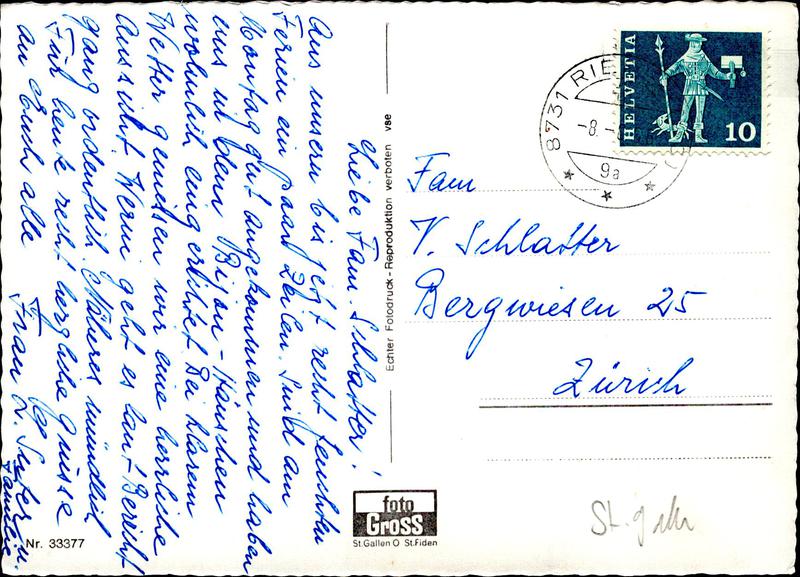 Liebe Fam. Schlatter!
Aus unsern bis jetzt recht feuchten
Ferien ein paar Zeilen. Sind am
Montag gut angekommen und haben
uns in dem Bijou-Häuschen
wohnlich eingerichtet. Bei klarem
Wetter geniessen wir eine herrliche
Aussicht. Verni geht es laut Bericht
ganz ordentlich. Näheres mündlich
Für heute recht herzliche Grüsse
an Euch alle
Frau L. Suter u.
Familie
Echter Fotodruck - Reproduktion verboten vse
HELVETIA
10
8731 RIE
-8.
9a
Fam
V. Schlatter
Bergwiesen 25
Zürich
foto
Gross
St.Gallen O St.Fiden
Nr. 33377